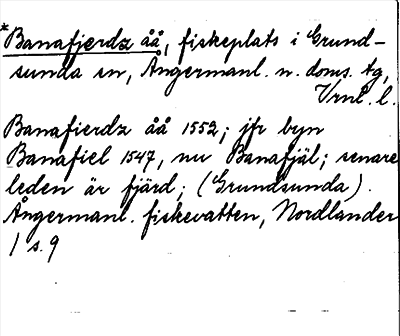 *Banafjerdz åå, fiskeplats i Grund-
sunda sn, Ångermanl. n. doms. tg,
Vrnl. l.
Banafierdz åå 1552; jfr byn
Banafiel 1547, nu Banafjäl; senare
leden är fjärd; (Grundsunda).
Ångermanl. fiskevatten, Nordlander
1 s. 9